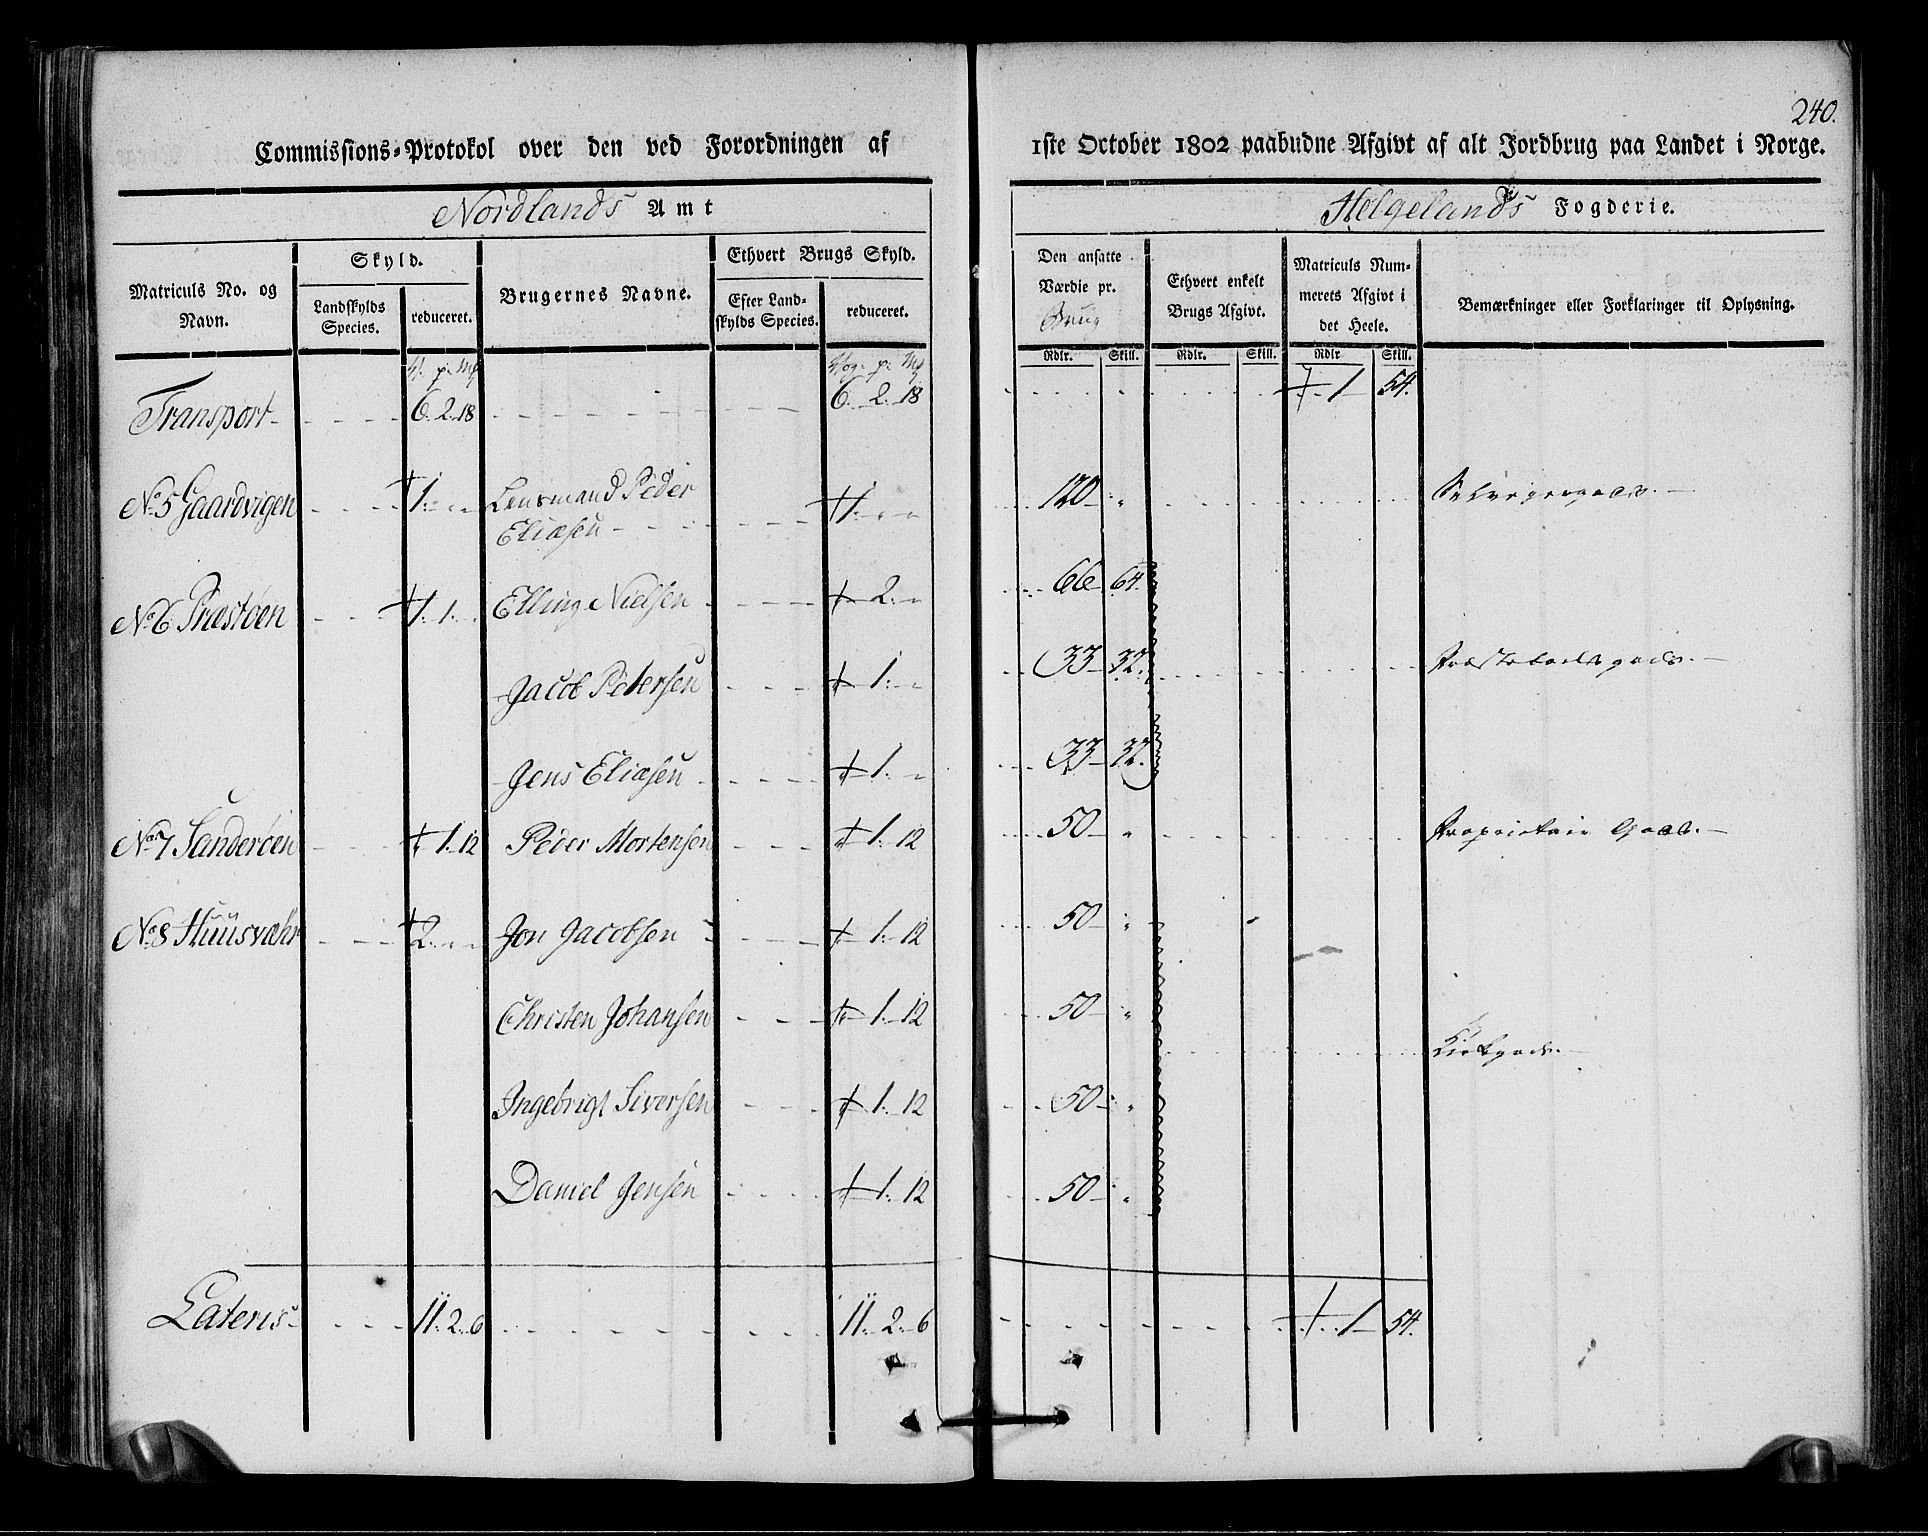 240.
Commissions-Protokol over den ved Forordningen af 1ste October 1802 paabudne Afgivt af alt Jordbrug paa Landet i Norge.
Nordlands Amt Helgelands Fogderie.
Matriculs No. og Navn.
Skyld.
Landskylds Species.
reduceret.
Brugernes Navne.
Ethvert Brugs Skyld.
Efter Landskylds Species.
reduceret.
Den ansatte Værdie pr. Brug
Ethvert enkelt Brugs Afgivt.
Matriculs Nummerets Afgivt i det Heele.
Bemærkninger eller Forklaringer til Oplysning.
Rdlr. Skill. Rdlr. Skill. Rdlr Skill.
V. p. M Vog. p. M
Transport 6. 2. 18 6. 2. 18 1 54.
No 5 Gaardvigen 1. " " Lensmand Peder Eliæsen 1. " " 120 " Selveyergods.
No 6 Præstøen 1. 1. " Elling Nielsen 2. " 66 64.
Jacob Petersen 1. " 33 32. Præstebolsgods.
Jens Eliæsen 1. " 33 32.
No 7 Sanderøen 1. 12 Peder Mortensen 1. 12 50 " Proprietair Gods.
No 8 Huusvæhr 2. " " Jon Jacobsen 1. 12 50 "
Christen Johansen 1. 12 50 " Kirkgods.
Ingebrigt Siversen 1. 12 50 "
Daniel Jensen 1. 12 50 "
Lateris 11. 2. 6 11. 2. 6 1 54.